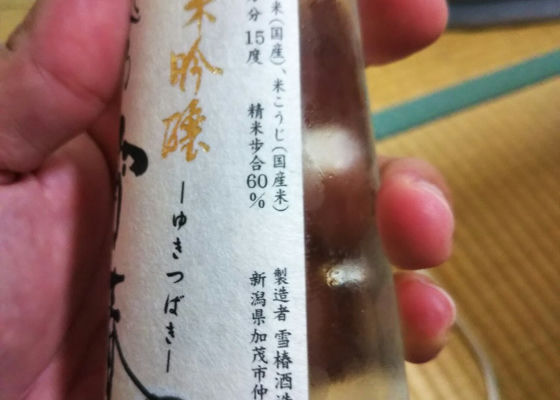 米(国産)、米こうじ(国産米)
分 15度 精米歩合60%
製造者 雪椿酒造
新潟県加茂市仲
米吟醸
―ゆきつばき―